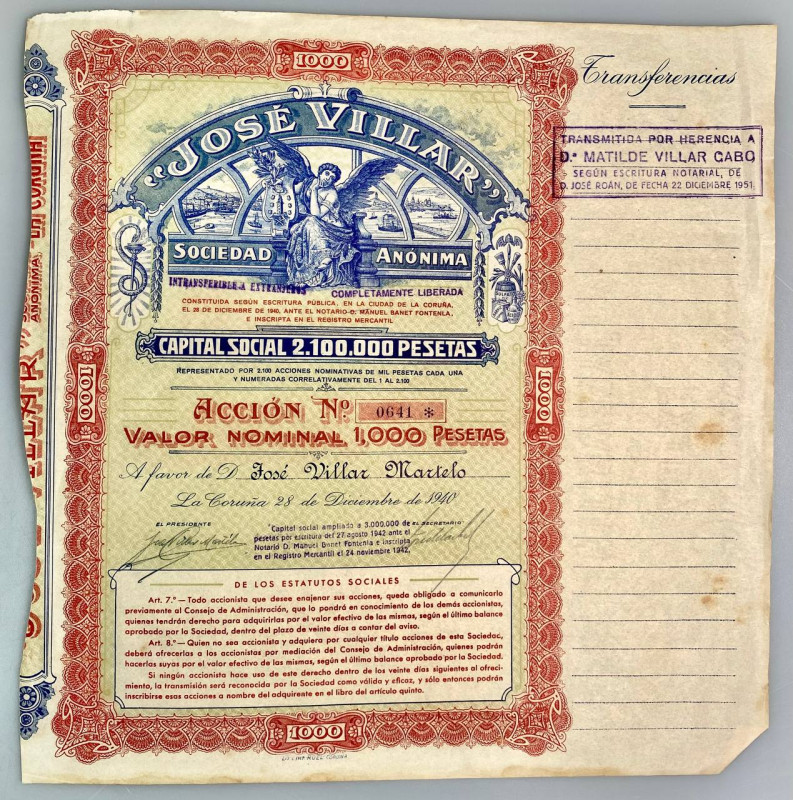 1000
"JOSÉ VILLAR"
SOCIEDAD ANÓNIMA
INTRANSFERIBLE A EXTRANJEROS COMPLETAMENTE LIBERADA
CONSTITUIDA SEGÚN ESCRITURA PÚBLICA, EN LA CIUDAD DE LA CORUÑA,
EL 28 DE DICIEMBRE DE 1940, ANTE EL NOTARIO D. MANUEL BANET FONTENLA,
E INSCRIPTA EN EL REGISTRO MERCANTIL
CAPITAL SOCIAL 2.100.000 PESETAS
REPRESENTADO POR 2.100 ACCIONES NOMINATIVAS DE MIL PESETAS CADA UNA
Y NUMERADAS CORRELATIVAMENTE DEL 1 AL 2.100
1000
1000
ACCIÓN Nº 0641 *
VALOR NOMINAL 1,000 PESETAS
A favor de D. José Villar Martelo
La Coruña 28 de Diciembre de 1940
EL PRESIDENTE
EL SECRETARIO
Capital social ampliado a 3.000.000 de
pesetas por escritura del 27 agosto 1942 ante el
Notario D. Manuel Banet Fontenla e inscripta
en el Registro Mercantil el 24 noviembre 1942.
DE LOS ESTATUTOS SOCIALES
Art. 7.º — Todo accionista que desee enajenar sus acciones, queda obligado a comunicarlo
previamente al Consejo de Administración, que lo pondrá en conocimiento de los demás accionistas,
quienes tendrán derecho para adquirirlas por el valor efectivo de las mismas, según el último balance
aprobado por la Sociedad, dentro del plazo de veinte días a contar del aviso.
Art. 8.º — Quien no sea accionista y adquiera por cualquier título acciones de esta Sociedad,
deberá ofrecerlas a los accionistas por mediación del Consejo de Administración, quienes podrán
hacerlas suyas por el valor efectivo de las mismas, según el último balance aprobado por la Sociedad.
Si ningún accionista hace uso de este derecho dentro de los veinte días siguientes al ofreci-
miento, la transmisión será reconocida por la Sociedad como válida y eficaz, y sólo entonces podrán
inscribirse esas acciones a nombre del adquirente en el libro del artículo quinto.
1000
Transferencias
TRANSMITIDA POR HERENCIA A
D.ª MATILDE VILLAR CABO
SEGÚN ESCRITURA NOTARIAL, DE
D. JOSÉ ROÁN, DE FECHA 22 DICIEMBRE 1951
ANÓNIMA - LA CORUÑA